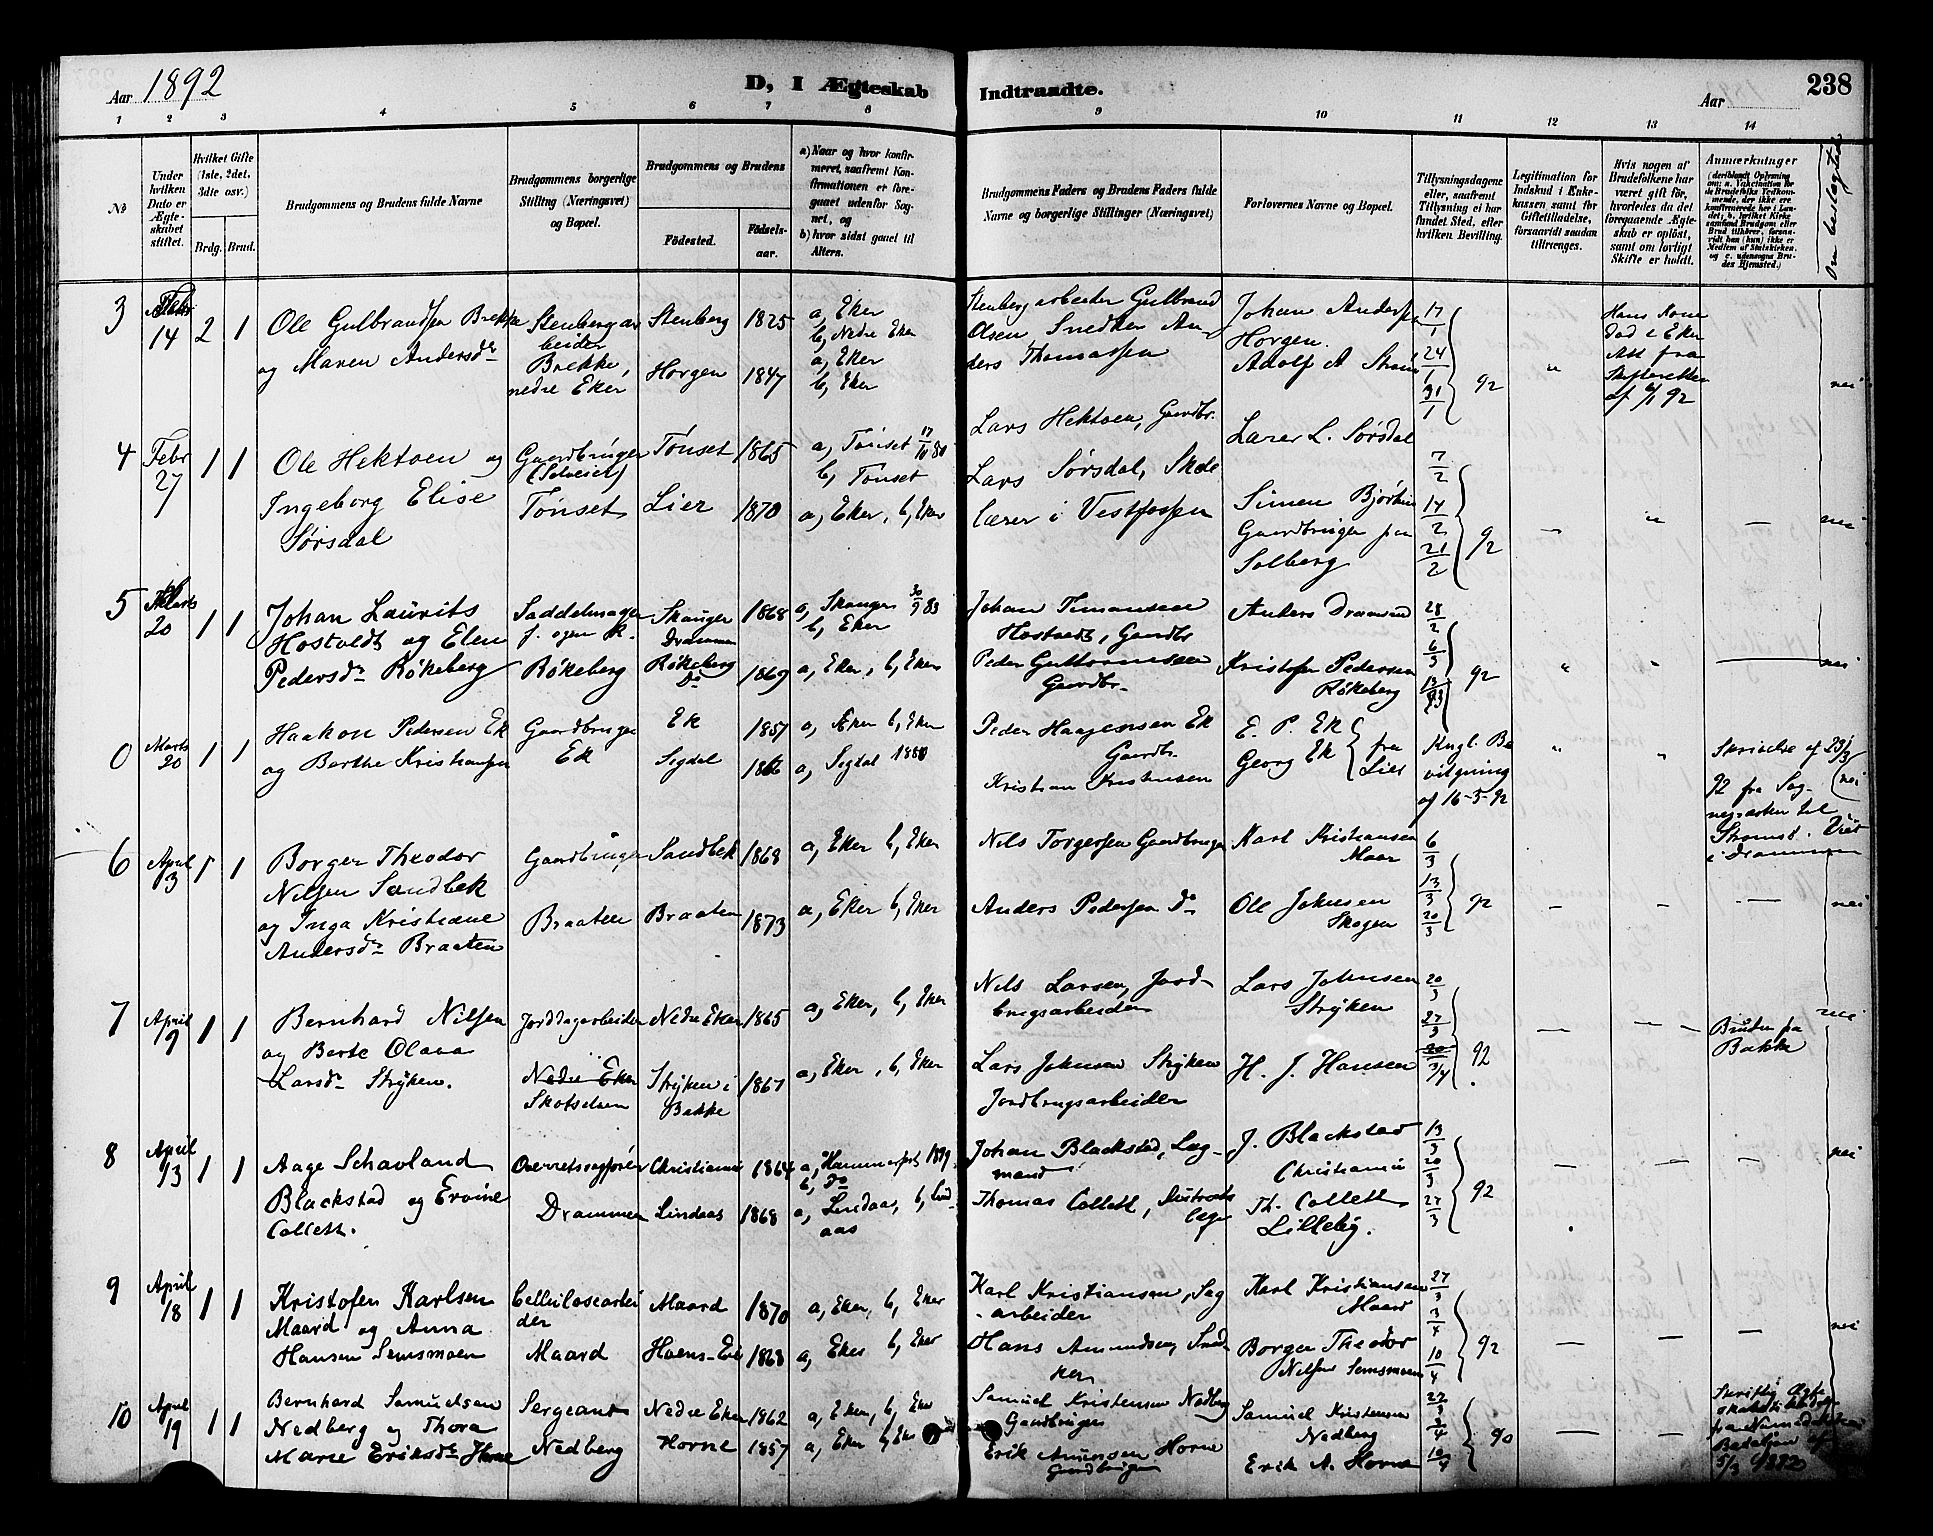 Aar 1892
D, I Ægteskab Indtraadte.
Aar
238
1 2 3 4 5 6 7 8 9 10 11 12 13 14
No
Under hvilken Dato er Ægteskabet stiftet.
Hvilket Gifte (1ste, 2det, 3die osv.)
Brdg. Brud.
Brudgommens og Brudens fulde Navne
Brudgommens borgerlige Stilling (Næringsvei) og Bopæl.
Brudgommens og Brudens
Födested.
Födselsaar.
a) Naar og hvor konfirmeret, saafremt Konfirmationen er foregaaet udenfor Sognet, og
b) hvor sidst gaaet til Alters.
Brudgommens Faders og Brudens Faders fulde Navne og borgerlige Stillinger (Næringsvei)
Forlovernes Navne og Bopæl.
Tillysningsdagene eller, saafremt Tillysning ei har fundet Sted, efter hvilken Bevilling.
Legitimation for Indskud i Enkekassen samt for Giftetilladelse, forsaavidt saadan tiltrænges.
Hvis nogen af Brudefolkene har været gift för, hvorledes da det foregaaende Ægteskab er oplöst, samt om lovligt Skifte er holdt.
Anmærkninger
Om beslægtede
3 Febr 14 2 1
Ole Gulbrandsen Brekke
og Maren Andersdr
Stenbergar
beider
Brekke,
nedre Eker
Stenberg 1825
Horgen 1847
a, Eker
b, Nedre Eker
a, Eker
b, Eker
Stenbergarbeider Gulbrand
Olsen Snedker An
ders Thomassen
Johan Andersen
Horgen.
Adolf A
17/1
24/1
31/1
92
"
Hans Kone
Død i Eker
Att fra
Skifteretten
af 92
nei
4 Febr 27 1 1
Ole Hektoen og
Ingeborg Elise
Sørsdal
Gaardbruger
(Selveier)
Tønset
Tønset 1865
Lier 1870
a, Tønset 17/10 80
b, Tønset
a, Eker, b, Eker
Lars Hektoen, Gaardbr.
Lars Sørsdal, Skole
lærer i Vestfossen
Lærer L. Sørsdal
Simen
Gaardbruger paa
Solberg
7/2
14/2
21/2
92
— " — nei
5 Marts 20 1 1
Johan Laurits
Hostvedt og Elen
Pedersdr Røkeberg
Saddelmager
f. egen R.
Røkeberg
Skauger
Drammen 1868
Røkeberg
Do 1869
a, Skauger 30/9 83
b, Eker
a, Eker, b, Eker
Johan
Hostvedt, Gaardbr
Peder Guttormsen
Gaardbr.
Anders
Kristofer Pedersen
Røkeberg
28/2
6/3
13/3
92
" " — nei
0 Marts 20 1 1
Haakon Pedersen Ek
og Berthe Kristiansen
Gaardbruger
Ek
Ek 1857
Sigdal 1866
a, Eker b, Eker
a, Sigdal 1880
Peder Haagensen Ek
Gaardbr.
Kristian Kristiansen
E. P. Ek
Georg Ek
fra
Lier
Kngl. Be
vilgning
af 16-3-92
" "
Skrivelse af 23/3
92 fra Sog-
nepræsten til
Strømsø.
i Drammen
nei
6 April 3 1 1
Borger Theodor
Nilsen Sandbek
og Inga Kristiane
Andersdr Braaten
Gaardbruger
Braaten
Sandbek 1868
Braaten 1873
a, Eker b, Eker
a, Eker b, Eker
Nils Torgersen Gaardbruger
Anders Pedersen Do
Karl Kristiansen
Maar
Ole Johnsen
Skogen
6/3
13/3
20/3
92
— — — nei
7 April 9 1 1
Bernhard Nilsen
og Berte Olava
Larsdr Stryken.
Jorddagarbeider
Nedre Eker
Skotselven
Nedre Eker 1865
Stryken i
Bakke 1867
a, Eker, b, Eker
a, Eker, b, Eker
Nils Larsen, Jord-
brugsarbeider
Lars Johnsen Stryken
Jordbrugsarbeider
Lars Johnsen
Stryken
H. J. Hansen
20/3
27/3
3/4
92
— — —
Bruden fra
Bakke
nei
8 April 13 1 1
Aage Schavland
Blackstad og Ervine
Collett.
Overretssagfører
Drammen
Christiania 1864
Lindaas 1868
a, Hammerfest 1879
b, Do
a, Lindaas, b, Lind-
aas
Johan Blackstad, Lag-
mand
Thomas Collett, Distrikts
læge
J. Blackstad
Christiania
Th. Collett
Lilleby.
13/3
20/3
27/3
92
— — — nei
9 April 18 1 1
Kristofer Karlsen
Maard og Anna
Hansen Semsmoen
Cellulosearbei
der
Maard
Maard 1870
Hoens-Eie 1868
a, Eker, b, Eker
a, Eker b, Eker
Karl Kristiansen, Sag
-arbeider
Hans Amundsen, Sned
ker
Karl Kristiansen
Maard
Borger Theodor
Nilsen Semsmoen
27/3
3/4
10/4
92
— — — nei
10 April 19 1 1
Bernhard Samuelsen
Nedberg og Thora
Marie Eriksdr Horne
Sergeant
Nedberg
Nedre Eker 1862
Horne 1857
a, Eker, b, Eker
a, Eker b, Eker
Samuel Kristensen Nedberg
Gaardbruger
Erik Amunsen Horne
Gaardbruger
Samuel Kristensen
Nedberg
Erik A. Horne
27/3
3/4
10/4
90
— —
Skriftlig Ægte
skabstilladelse
fra Numedalske
Bataljon af
5/3 1892